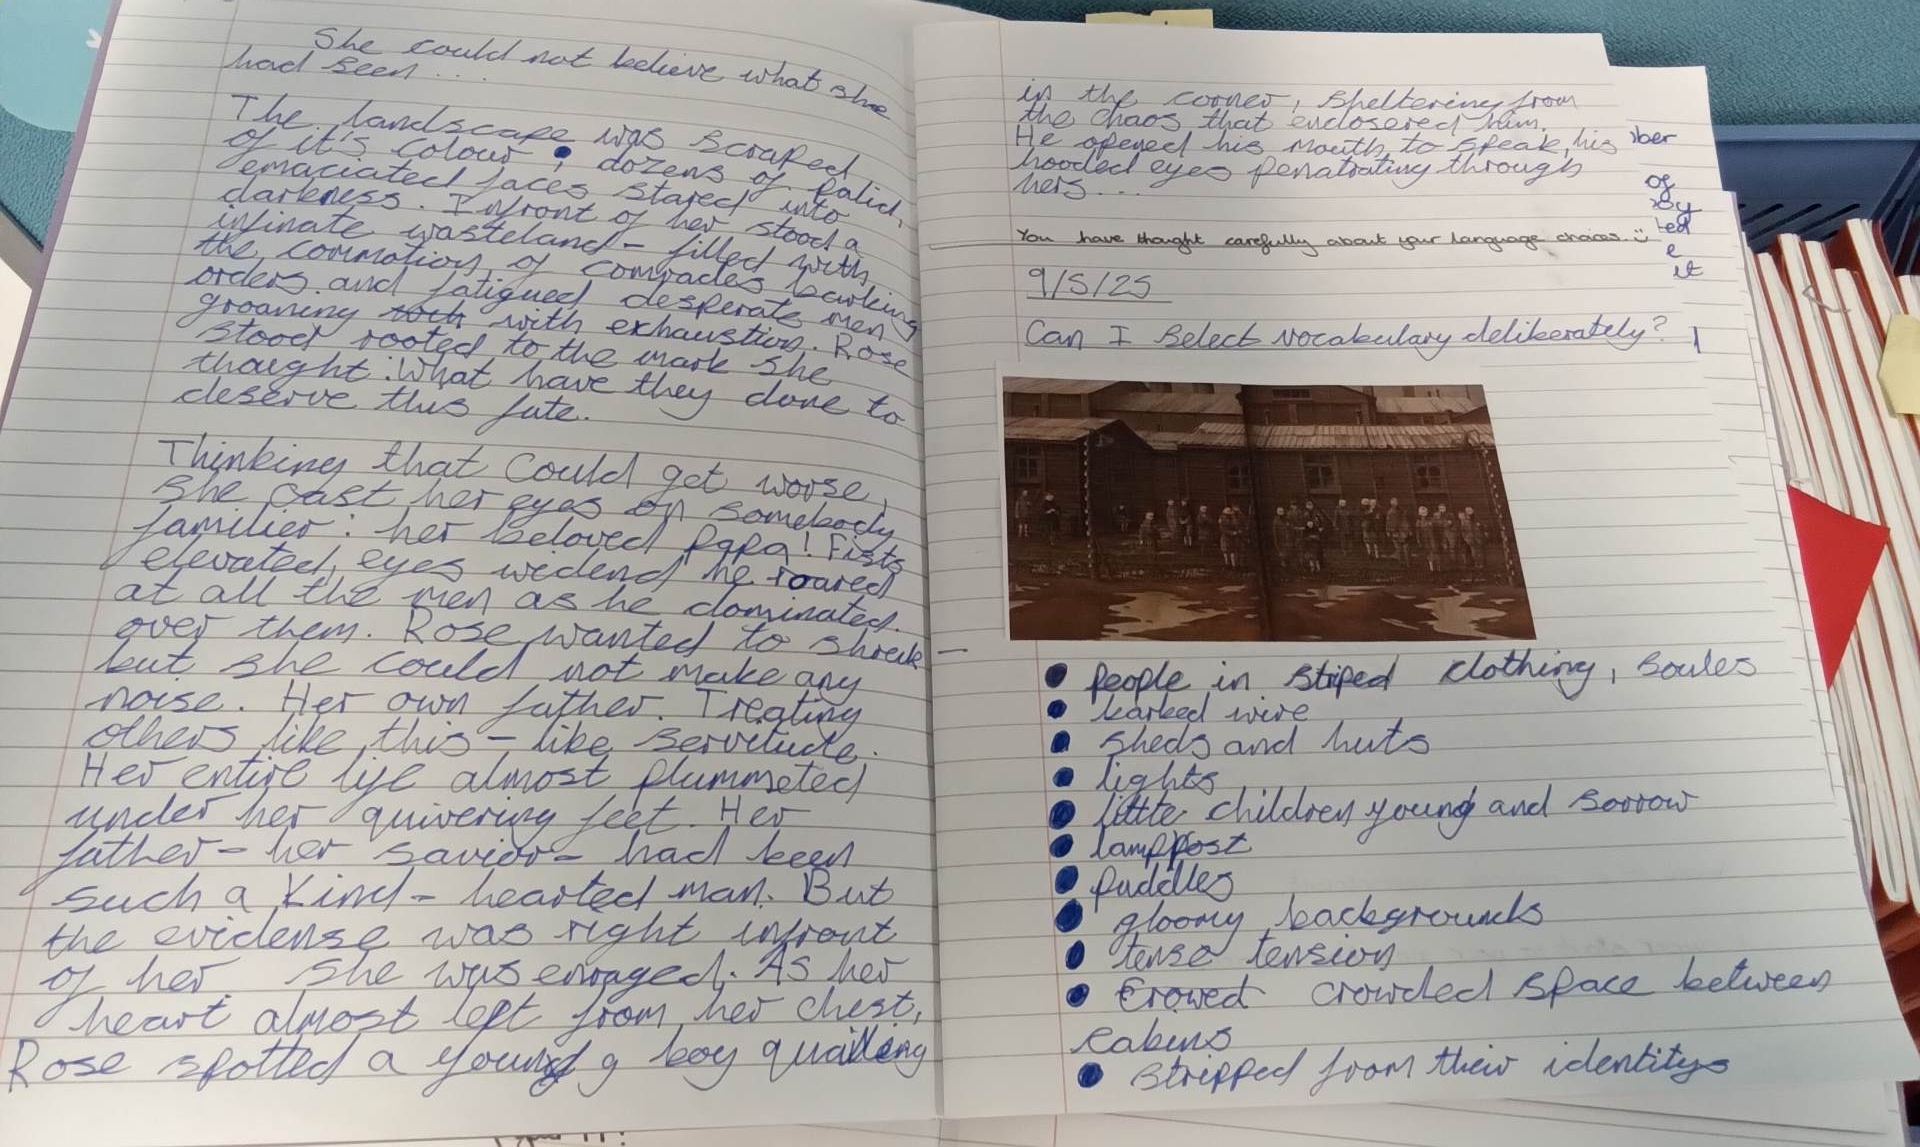 She could not believe what she
had seen ...
The landscape was scraped
of it's colour; dozens of palid,
emaciated faces stared into
darkness. Infront of her stood a
infinate wasteland - filled with
the commotion of comrades barking
orders and fatigued desperate men
groaning with exhaustion. Rose
stood rooted to the mark she
thought: What have they done to
deserve this fate.
Thinking that could get worse,
she cast her eyes on somebody
familier: her beloved Papa! Fists
elevated, eyes widend he roared
at all the men as he dominated
over them. Rose wanted to shreik -
but she could not make any
noise. Her own father. Treating
others like this - like servitude.
Her entire life almost plummeted
under her quivering feet. Her
father - her savior - had been
such a kind - hearted man. But
the evidense was right infront
of her. She was enraged. As her
heart almost left from her chest,
Rose spotted a young boy quailing
in the corner, sheltering from
the chaos that enclosered him.
He opened his mouth to speak, his
hooded eyes penatrating through
hers ...
You have thought carefully about your language choices. :)
9/5/25
Can I select vocabulary deliberately?
• people in striped clothing, soules
• barked wire
• sheds and huts
• lights
• little children young and sorrow
• lamppost
• puddles
• gloomy backgrounds
• tense tension
• Crowed crowded space between
cabins
• stripped from their identitys